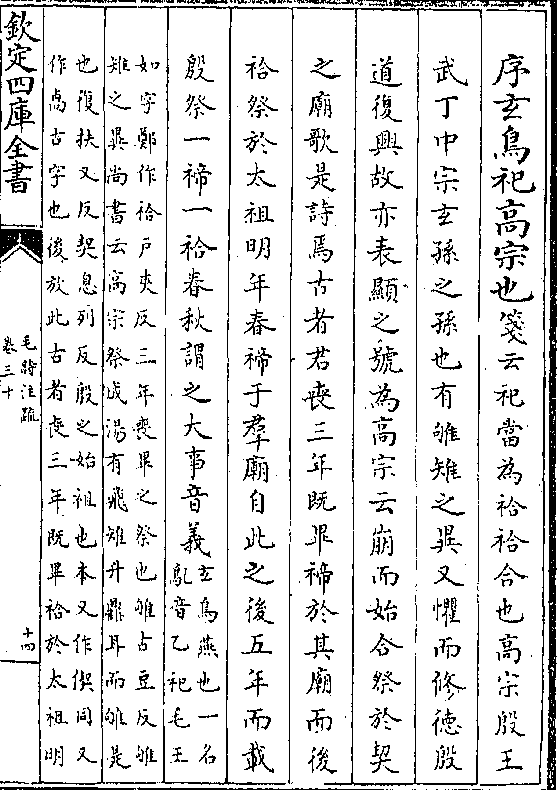 序玄鳥祀高宗也箋云祀當為祫祫合也高宗殷王
武丁中宗玄孫之孫也有雊雉之異又懼而修德殷
道復興故亦表顯之號為高宗云崩而始合祭於契
之廟歌是詩焉古者君喪三年既畢禘於其廟而後
祫祭於太祖明年春禘于羣廟自此之後五年而載
殷祭一禘一祫春秋謂之大事音義玄鳥燕也一名
鳦音乙祀毛王
如字鄭作祫戶夾反三年喪畢之祭也雊古豆反雊
雉之異尚書云高宗祭成湯有飛雉升鼎耳而雊是
也復扶又反契息列反殷之始祖也本又作偰同又
作卨古字也後放此古者喪三年既畢祫於太祖明
欽定四庫全書
毛詩注疏
卷三十
十四